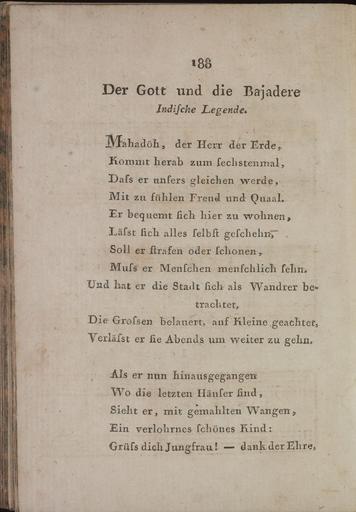 188
Der Gott und die Bajadere
Indiſche Legende.
Mahadöh, der Herr der Erde,
Kommt herab zum ſechstenmal,
Daſs er unſers gleichen werde,
Mit zu fühlen Freud und Quaal.
Er bequemt ſich hier zu wohnen,
Läſst ſich alles ſelbſt geſchehn,
Soll er ſtrafen oder ſchonen,
Muſs er Menſchen menſchlich ſehn.
Und hat er die Stadt ſich als Wandrer be-
trachtet,
Die Groſsen belauert, auf Kleine geachtet,
Verläſst er ſie Abends um weiter zu gehn.
Als er nun hinausgegangen
Wo die letzten Häuſer ſind,
Sieht er, mit gemahlten Wangen,
Ein verlohrnes ſchönes Kind:
Grüſs dich Jungfrau! — dank der Ehre,